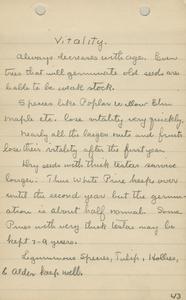 Vitality.
Always decreases with age. Even
tho that will germinate old seeds are
liable to be weak stock.
Species like Poplar willow Elm
maple etc. lose vitality very quickly.
Nearly all the larger nuts and fruits
lose their vitality after the first year.
Dry seeds with thick testas survive
longer. Thus White Pine keeps over
until the second year but the germin-
ation is about half normal. Some
Pines with very thick testas may be
kept 7-9 years.
Leguminous Species, Tulip, Hollies,
& Alder keep well.
43